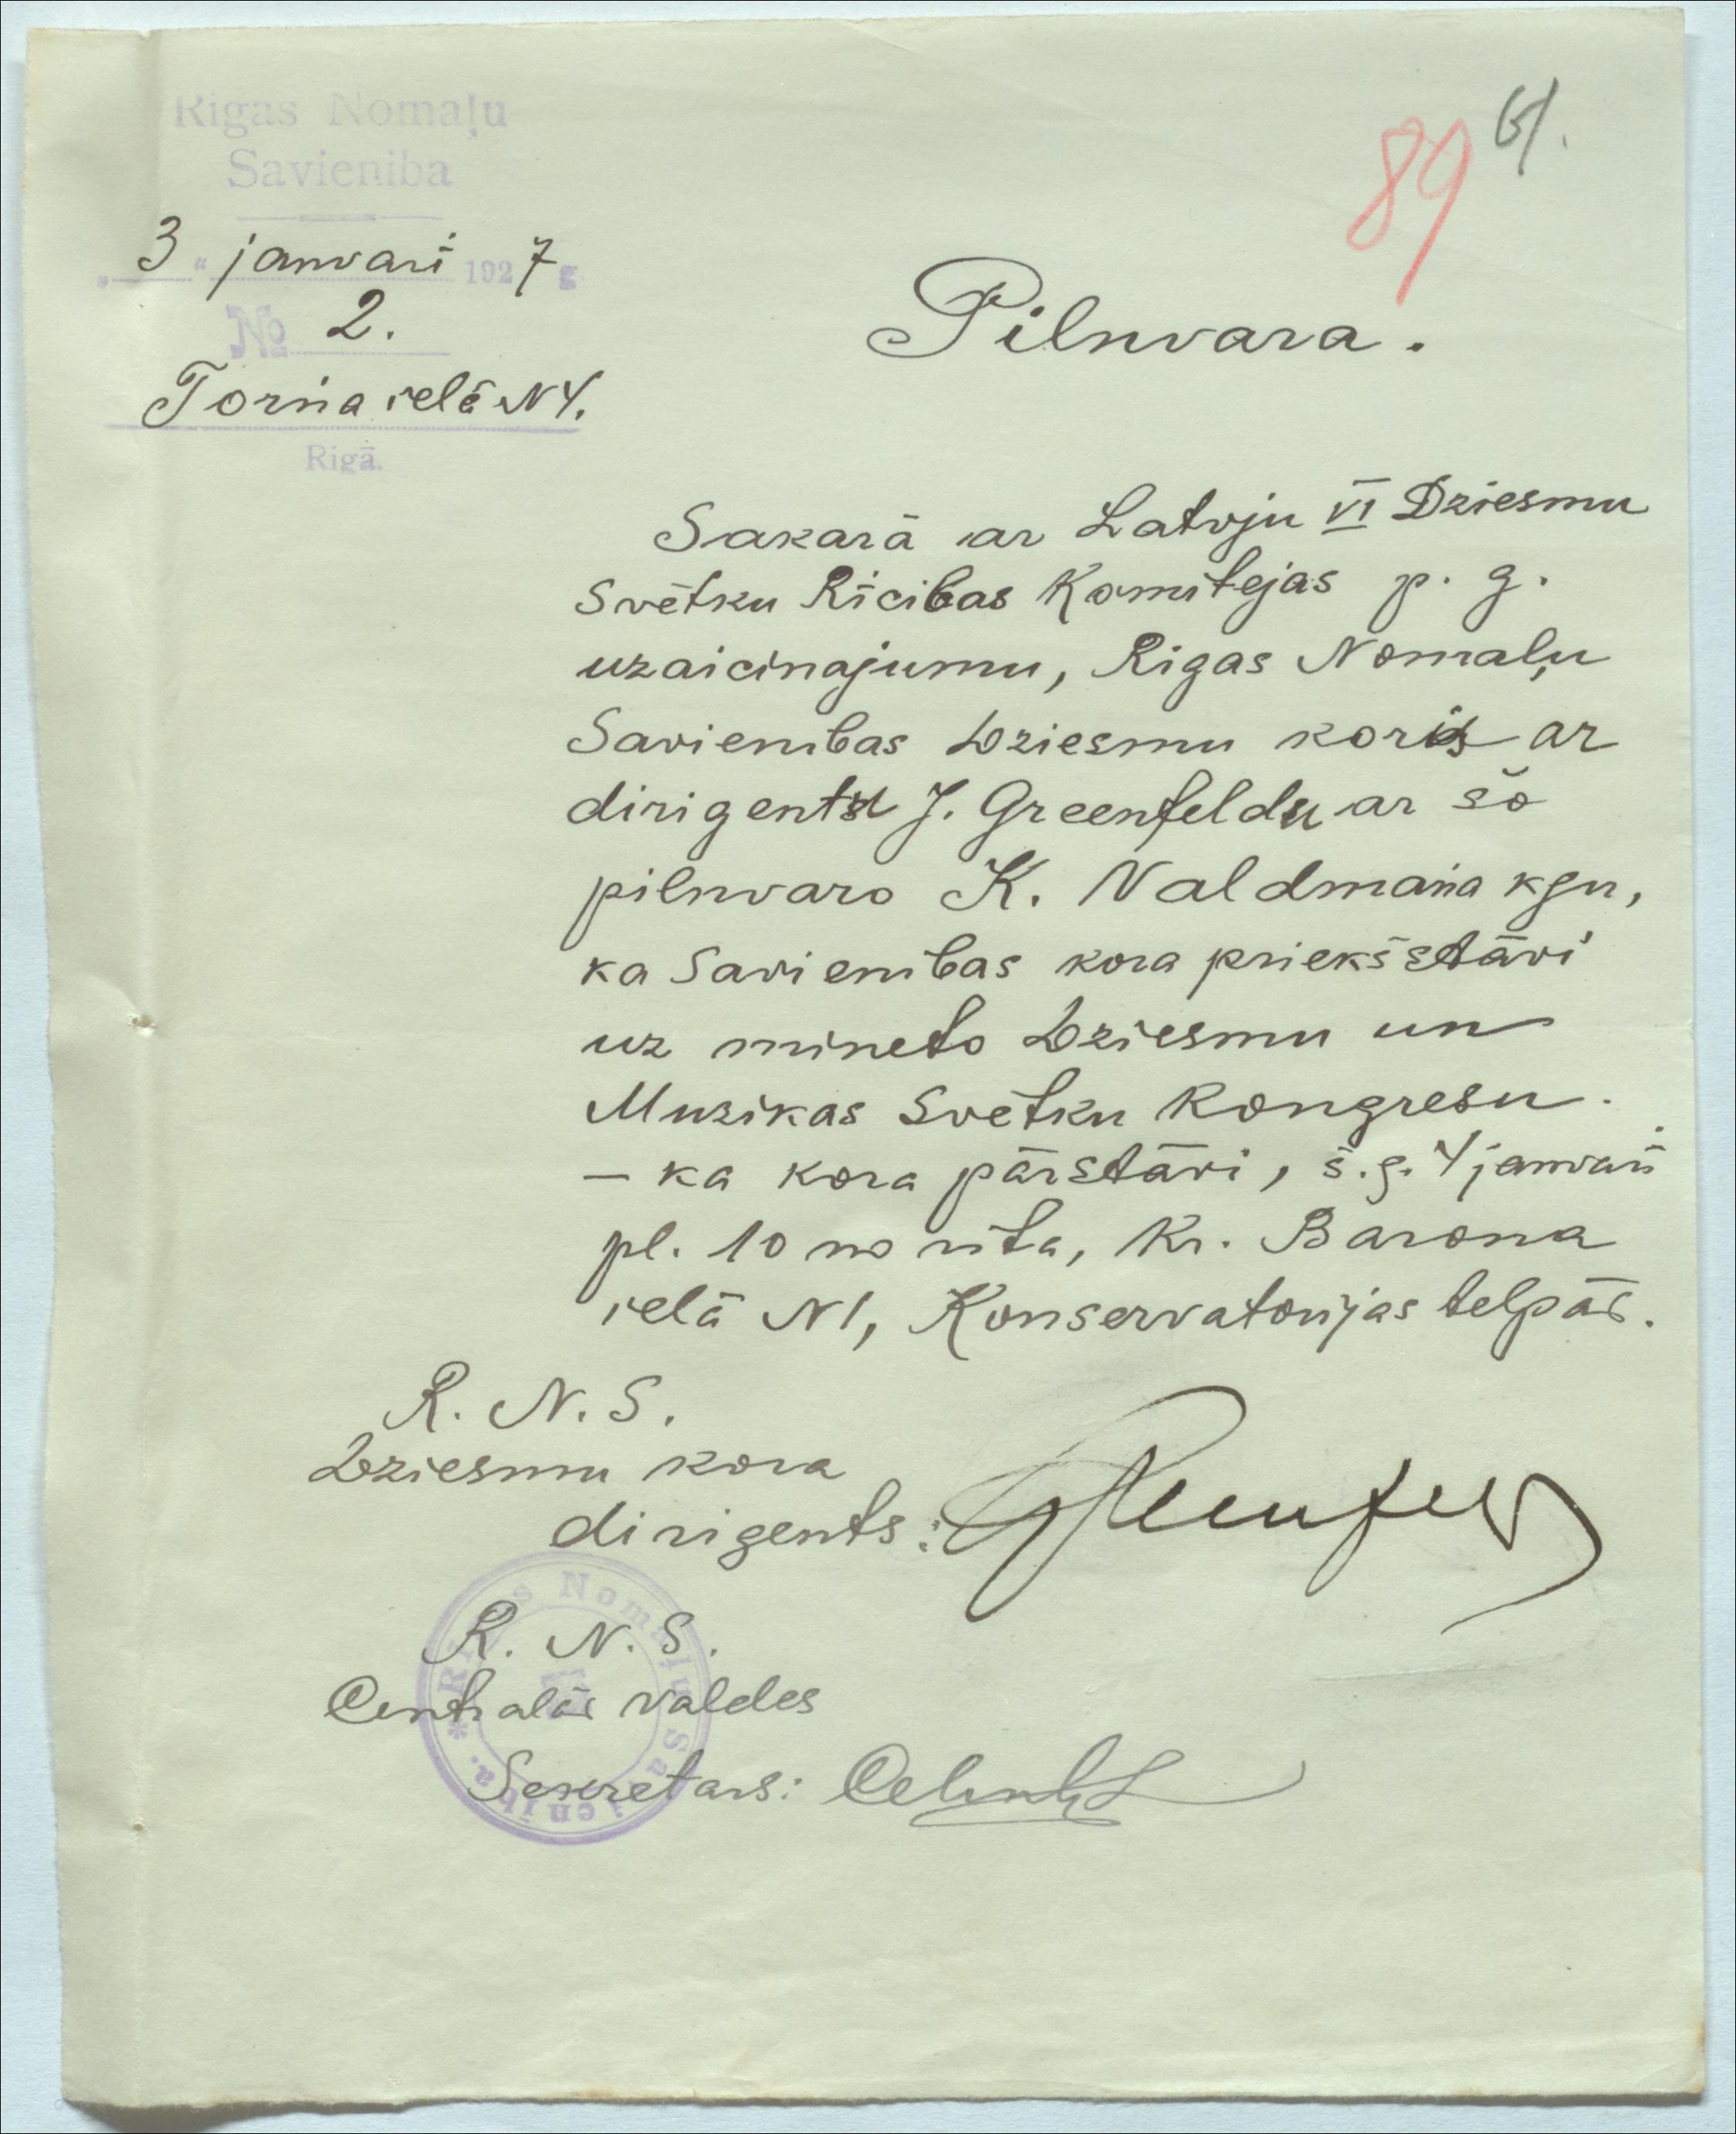 Rigas Nomaļu
Savieniba
89 61.
„3“ janvari 1927 g.
№ 2.
Torņa ielā N 4.
Rigā.
Pilnvara.
Sakarā ar Latvju VI Dziesmu
Svētku Rīcibas Komitejas p. g.
uzaicinajumu, Rigas Nomaļu
Savienibas Dziesmu koris ar
dirigentu J. Greenfeldu ar šo
pilnvaro K. Valdmaņa kgu,
ka Savienibas kora priekšstāvi
uz mineto Dziesmu un
Muzikas Svētku Kongresu.
— ka kora pārstāvi, š. g. 4 janvarī
pl. 10 no rīta, Kr. Barona
ielā N1, Konservatorijas telpās.
R. N. S.
Dziesmu kora
dirigents:
R. N. S.
Centralās valdes
Sekretars:
* Rigas Nomaļu Savieniba.